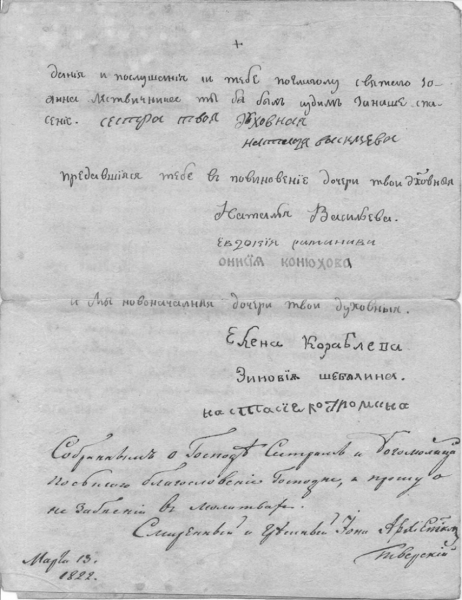 +
данія и послушанія и тебѣ святаго Іо-
анна Лѣствичника ты бы былъ за наше спа-
сеніе. сестра твоя Духовная
васильева
предавшіяся тебе в повиновеніе дочери твои духовныя
Наталья Васильева.
Евдокія
онисія конюхова
и Мы новоначалныя дочери твои духовныя.
Елена Кораблева
Зиновія шебалина.
настасіе костромина
о Господѣ Сестрамъ и
благословеніе Господне, и прошу о
не забвеніи въ молитвахъ.
Смиренный и грѣшный Іона Архіепископ
Тверскій
Марта 13.
1822.